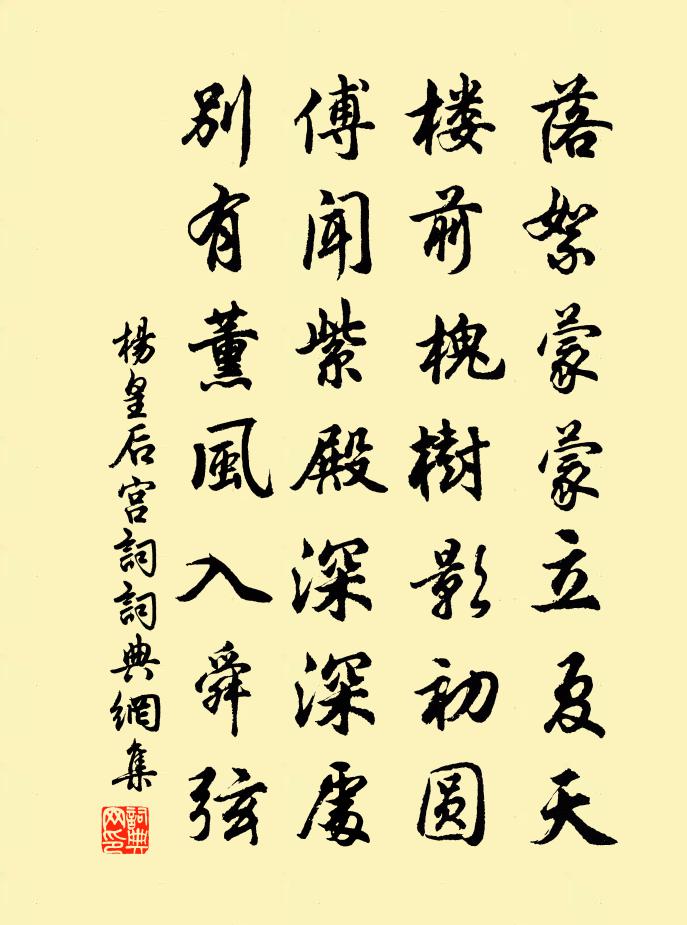 落絮蒙蒙立夏天
楼前槐樹影初圆
傅聞紫殿深深處
别有薰風入舜弦
楊皇后宫詞詞典網集
詞典
网印